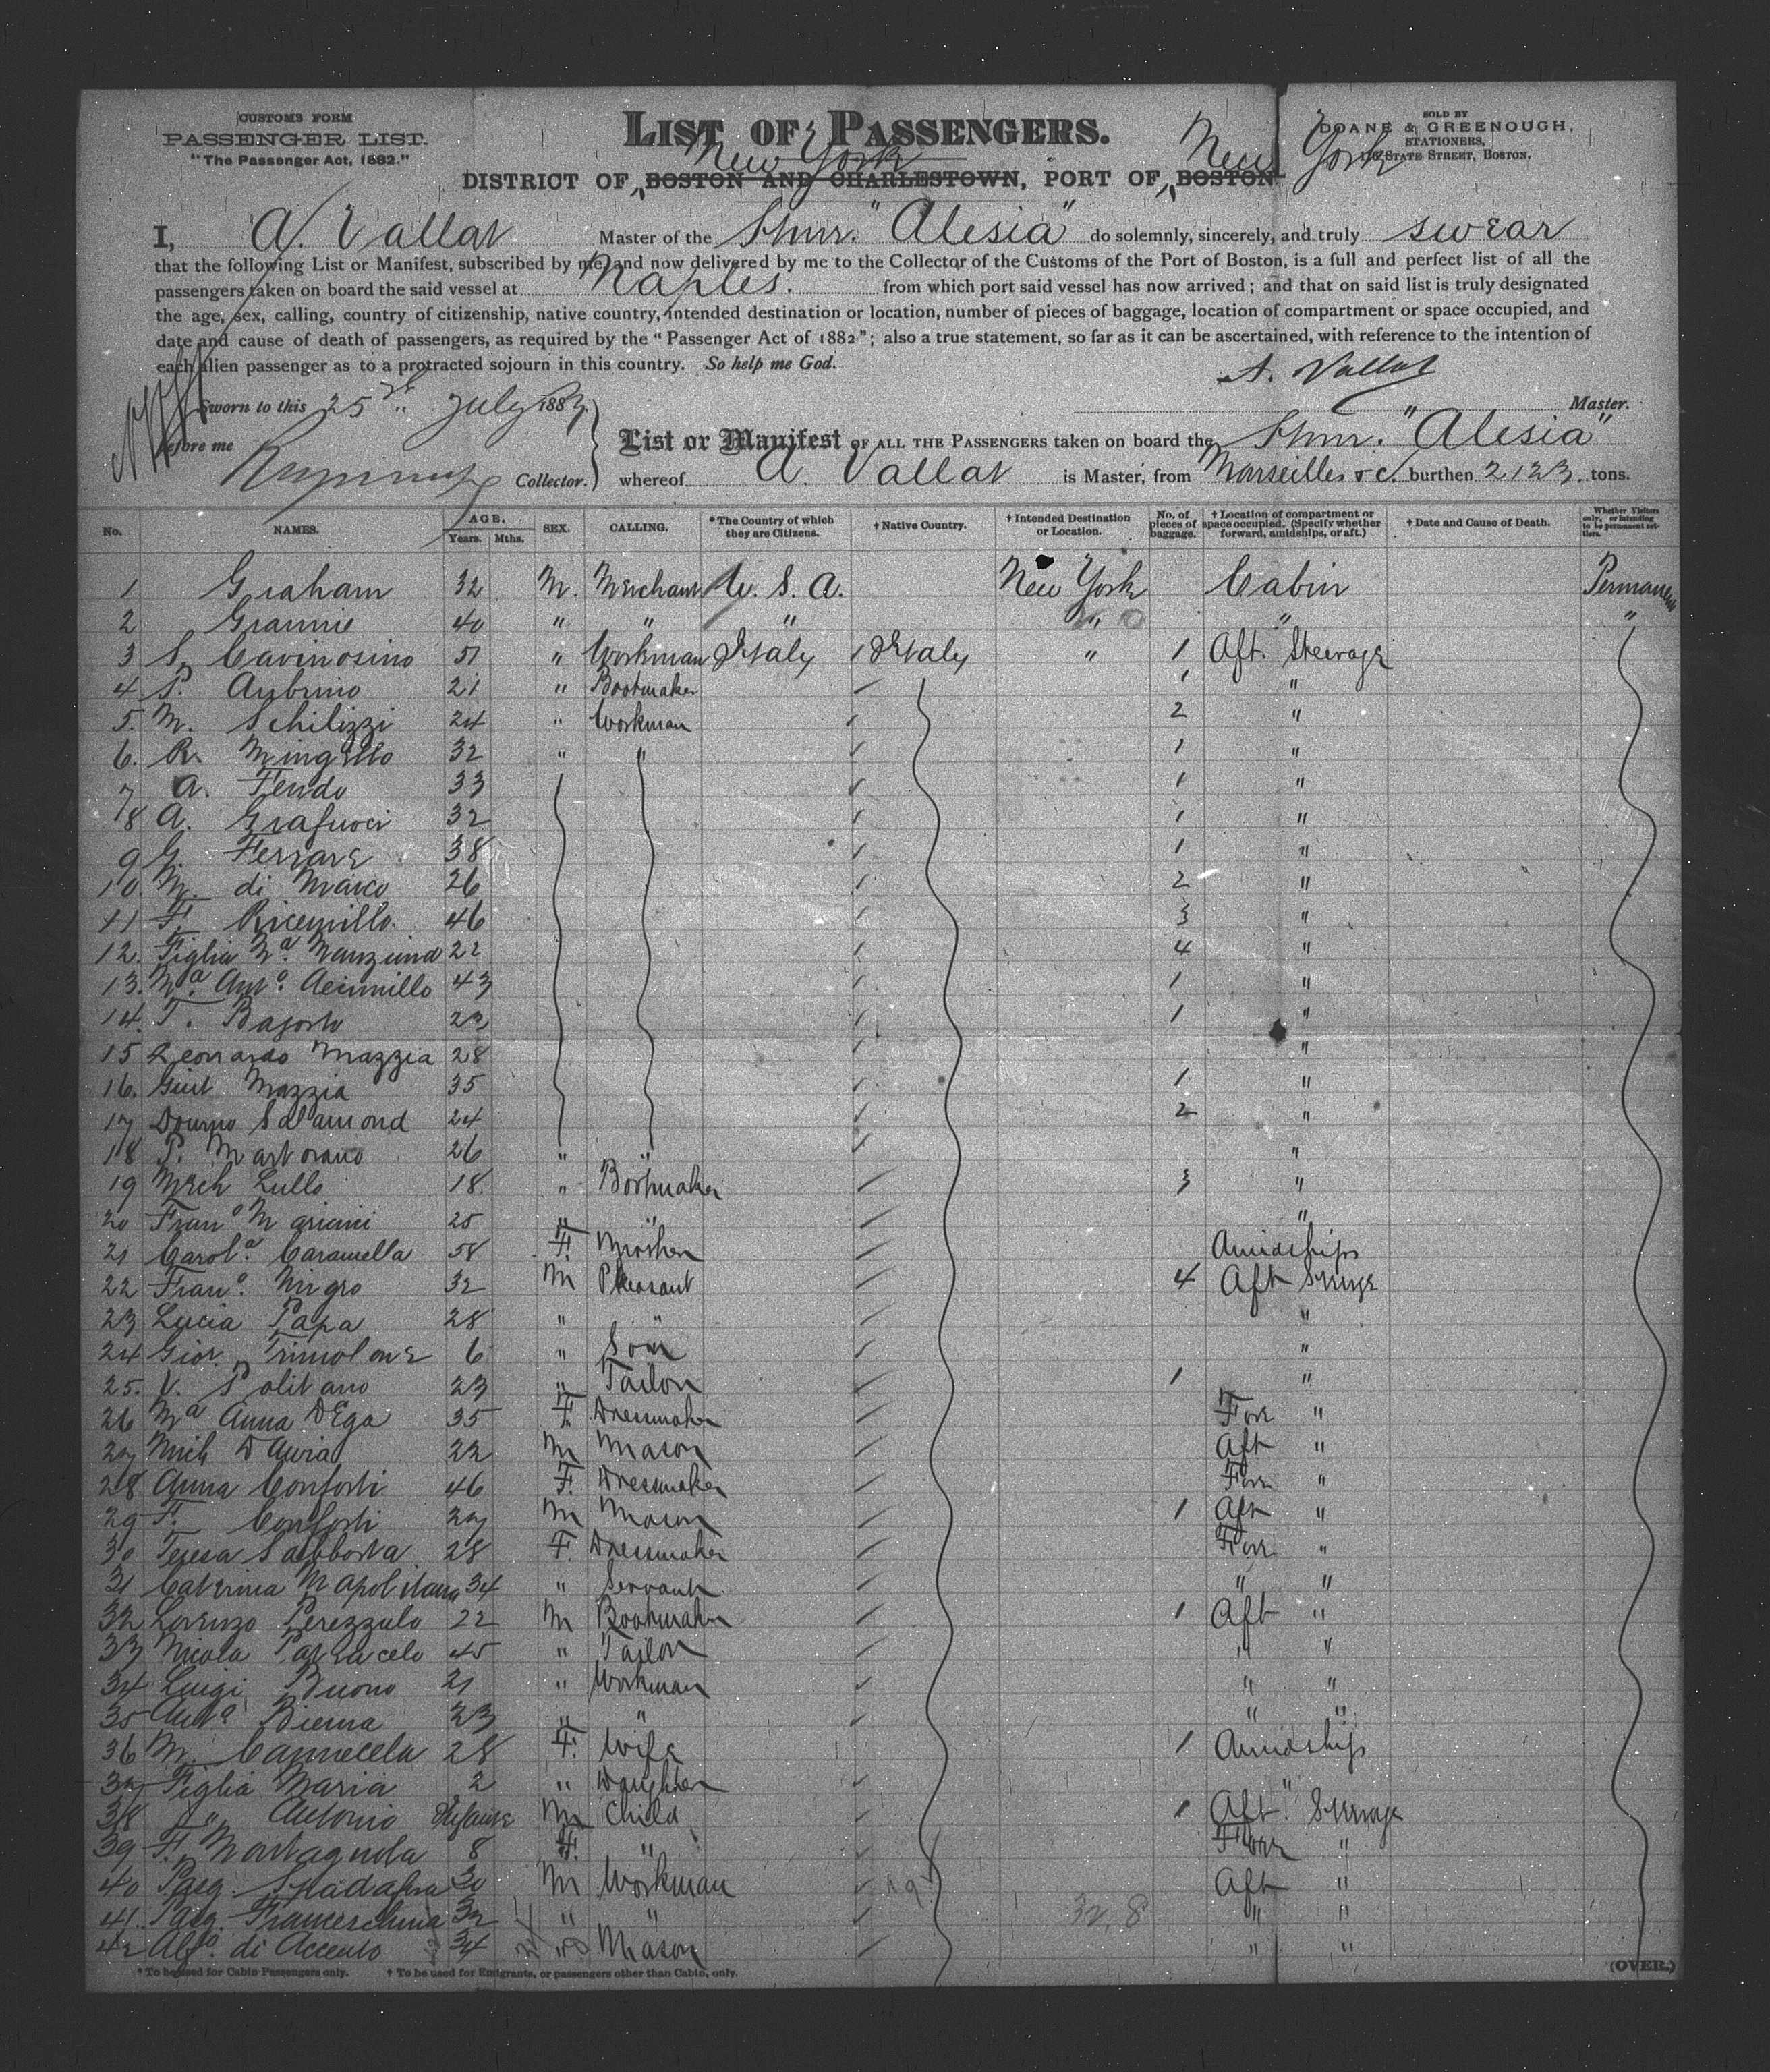 CUSTOMS FORM
PASSENGER LIST.
"The Passenger Act, 1882."
LIST OF PASSENGERS.
SOLD BY
DOANE & GREENOUGH,
STATIONERS,
STATE STREET, BOSTON.
New York New York
DISTRICT OF BOSTON AND CHARLESTOWN, PORT OF BOSTON
I, A. Vallat Master of the Stmr. "Alesia" do solemnly, sincerely, and truly swear
that the following List or Manifest, subscribed by me, and now delivered by me to the Collector of the Customs of the Port of Boston, is a full and perfect list of all the
passengers taken on board the said vessel at Naples. from which port said vessel has now arrived; and that on said list is truly designated
the age, sex, calling, country of citizenship, native country, intended destination or location, number of pieces of baggage, location of compartment or space occupied, and
date and cause of death of passengers, as required by the "Passenger Act of 1882"; also a true statement, so far as it can be ascertained, with reference to the intention of
each alien passenger as to a protracted sojourn in this country. So help me God.
A. Vallat
Sworn to this 25 July 1883. Master.
before me Collector.
List or Manifest OF ALL THE PASSENGERS taken on board the Stmr. "Alesia"
whereof A. Vallat is Master, from Marseilles & c. burthen 2123 tons.
No. NAMES. AGE. Years. Mths. SEX. CALLING. *The Country of which they are Citizens. † Native Country. † Intended Destination or Location. No. of pieces of baggage. † Location of compartment or space occupied. (Specify whether forward, amidships, or aft.) † Date and Cause of Death. Whether Visitors only, or intending to be permanent settlers.
1 Graham 32 M. Merchant U. S. A. New York Cabin Permanent
2 Grannie 40 " " " " " "
3 S. Cavinosino 51 " Workman Italy Italy " 1 Aft. Steerage
4. P. Aubrino 21 " Bootmaker 1 "
5. M. Schilizzi 24 " Workman 2 "
6. R. Mingello 32 " " 1 "
7 A. Tendo 33 1 "
8 A. 32 1 "
9 G. Ferrare 38 1 "
10. M. di Marco 26 2 "
11 F. 46 3 "
12. Figlia Ma. 22 4 "
13. Ma. Anto. 43 1 "
14. T. 1 "
15 Leonardo Mazzia 28 "
16. Mazzia 35 1 "
17 Salamond 24 2 "
18 P. Martorano 26 " " "
19 Mich Lullo 18 " Bootmaker 3 "
20 Frano Mariani 25 " " "
21 Carola. Caramella 58 F. Mother Amidships
22 Frano. Nigro 32 M Pheasant 4 Aft Steerage
23 Lucia Papa 28 " " "
24 Gior. Trimolone 6 " Son "
25. V. Politano 23 " Tailor 1 "
26 Ma Anna D'Ega 35 F. Dressmaker Fore "
27 Mich D'Auria 22 M Mason Aft "
28 Anna Conforti 46 F. Dressmaker Fore "
29 F. Conforti 27 M Mason 1 Aft "
30 Teresa Sabbosta 28 F. Dressmaker Fore "
31 Caterina Napolitana 34 " Servant " "
32 Lorenzo Perezzulo 22 M Bootmaker 1 Aft "
33 Nicola 45 " Tailor " "
34 Luigi Buono 21 " Workman " "
35 Anto Bierna 23 " " " "
36 M. Cannecela 28 F. Wife 1 Amidship
37 Figlia Maria 2 " Daughter "
38 " Antonio Infant M Child 1 Aft. Steerage
39 F. Martagnola 8 F. " Fore "
40 Pasq. Spadafora 30 M Workman Aft "
41. Pasq. Franceschina 32 " " " "
42 Alfo. di Accento 34 " Mason " "
* To be used for Cabin Passengers only. † To be used for Emigrants, or passengers other than Cabin, only.
(OVER.)